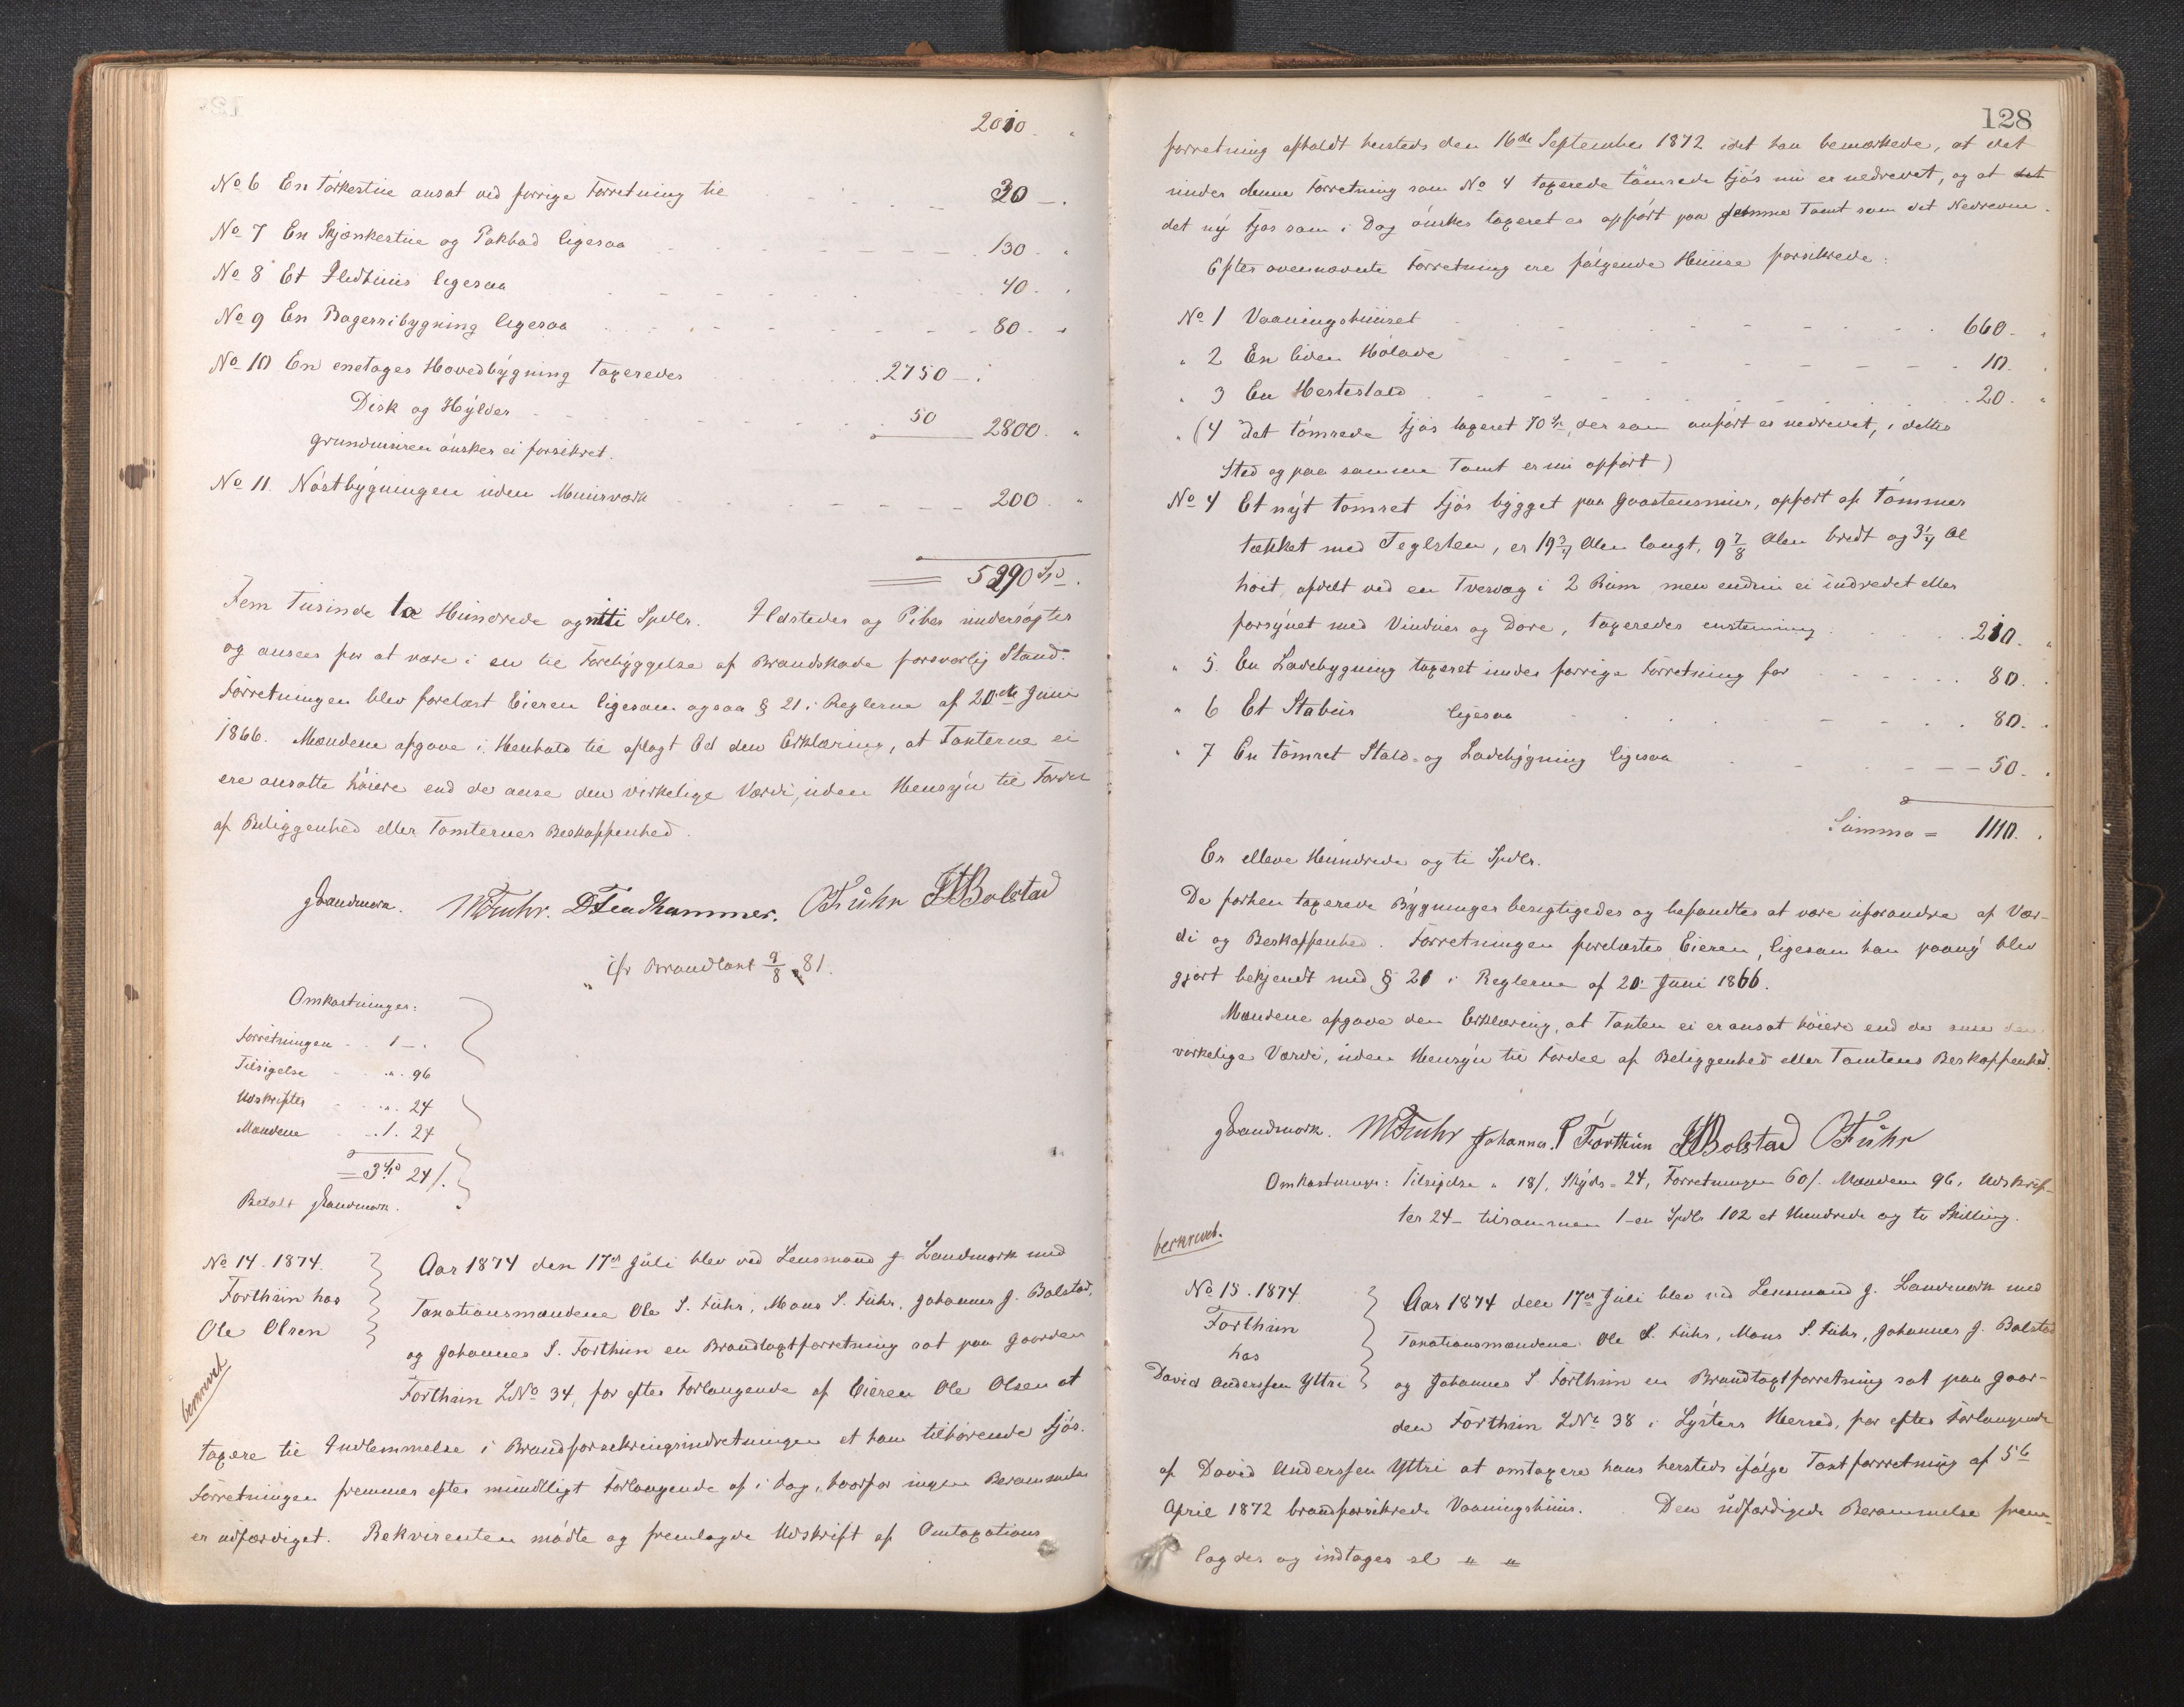 2010 . "
No 6 En Tørkestue ansat ved forrige Forretning til 30 - .
No 7 En Skjænkestue og Pakbod ligesaa 130 . "
No 8 Et Ildhuus ligesaa 40 - "
No 9 En Bageribygning ligesaa 80 - "
No 10 En enetages Hovedbygning taxeredes 2750 - .
Disk og Hylder 50 2800 . "
Grundmuren ønskes ei forsikret.
No 11. Nøstbygningen uden Muurværk 200 . "
5290 Spd.
Fem Tusinde to Hundrede og nitti Spdlr. Ildsteder og Piber undersøgtes
og ansees for at være i en til Forebyggelse af Brandskade forsvarlig Stand.
Forretningen blev forelæst Eieren ligesom ogsaa § 21 i Reglerne af 20de Juni
1866. Mændene afgave i Henhold til aflagt Ed den Erklæring, at Taxterne ei
ere ansatte høiere end de anse den virkelige Værdi, uden Hensyn til Fordel
af Beliggenhed eller Tomternes Beskaffenhed.
J Landmark. M Fuhr. O Fuhr J J Bolstad
Brandtaxt 9/8 81.
Omkostninger:
Forretningen 1 - .
Tilsigelse " 96
Udskrifter " 24
Mændene 1. 24
= 3 Spd 24 /.
Betalt J Landmark.
No 14. 1874.
Forthun hos
Ole Olsen
beskrevet
Aar 1874 den 17de Juli blev ved Lensmand J Landmark med
Taxationsmændene Ole S. Fuhr, Mons S. Fuhr, Johannes J. Bolstad,
og Johannes S. Forthun en Brandtaxtforretning sat paa Gaarden
Forthun LNo 34, for efter Forlangende af Eieren Ole Olsen at
taxere til Indlemmelse i Brandforsikringsindretningen et ham tilhørende Fjøs.
Forretningen fremmes efter mundtligt Forlangende af i Dag, hvorfor ingen Berammelse
er udfærdiget. Rekvirenten mødte og fremlagde Udskrift af Omtaxations
128
forretning afholdt hersteds den 16de September 1872 idet han bemærkede, at det
under denne Forretning som No 4 taxerede tømrede Fjøs nu er nedrevet, og at det
det ny Fjøs som i Dag ønskes taxeret er opført paa samme Tomt som det Nedrevne.
Efter ovennævnte Forretning ere følgende Huuse forsikrede:
No 1 Vaaningshuuset 660 . "
" 2 En liden Hølade 10 .
" 3 En Hestestald 20 . "
" (4 det tømrede Fjøs taxeret 70 Spd, der som anført er nedrevet, i dettes
Sted og paa samme Tomt er nu opført)
No 4 Et nyt tømret Fjøs bygget paa Graastensmuur, opført af Tømmer
tækket med Teglsten, er 19 3/4 Alen langt, 9 7/8 Alen bredt og 3 1/4 Al
høit, afdelt ved en Tvervæg i 2 Rum, men endnu ei indredet eller
forsynet med Vinduer og Døre, taxeredes enstemmig 210 . "
" 5. En Ladebygning taxeret under forrige Forretning for 80 .
" 6 Et Stabur ligesaa 80 . "
" 7 En tømret Stald- og Ladebygning ligesaa 50 . "
Summa = 1110. .
Er elleve Hundrede og ti Spdlr.
De forhen taxerede Bygninger besigtigedes og befandtes at være uforandre af Vær-
di og Beskaffenhed. Forretningen forelæstes Eieren, ligesom han paany blev
gjort bekjendt med § 21 i Reglerne af 20- Juni 1866.
Mændene afgave den Erklæring, at Taxten ei er ansat høiere end de anse den
virkelige Værdi, uden Hensyn til Fordel af Beliggenhed eller Tomtens Beskaffenhed.
J Landmark. M Fuhr Johannes S Forthun J J Bolstad O Fuhr
Omkostninger: Tilsigelse " 18 /, Skyds - 24, Forretningen 60 /. Mændene 96, Udskrif-
ter 24 - tilsammen 1 - en Spdlr 102 et Hundrede og to Skilling.
beskrevet.
No 15. 1874.
Forthun
hos
David Anderssen Yttri
Aar 1874 den 17de Juli blev ved Lensmand J. Landmark med
Taxationsmændene Ole S. Fuhr, Mons S. Fuhr, Johannes J. Bolstad
og Johannes S Forthun en Brandtaxtforretning sat paa Gaar-
den Forthun LNo 38 i Lysters Herred, for efter Forlangende
af David Anderssen Yttri at omtaxere hans hersteds ifølge Taxtforretning af 5te
April 1872 brandforsikrede Vaaningshuus. Den udfærdigede Berammelse frem-
lagdes og indtages sl " "